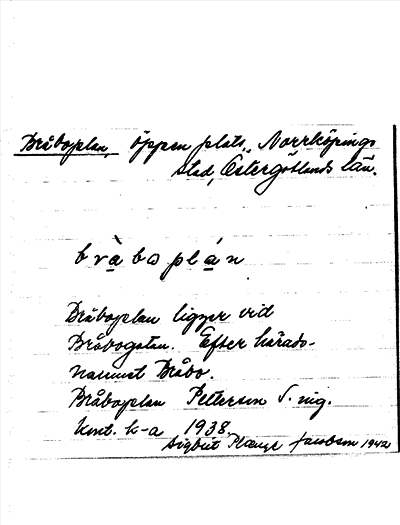 Bråboplan, öppen plats, Norrköpings
stad, Östergötlands län.
bràboplán
Bråboplan ligger vid
Bråbogatan. Efter härads-
namnet Bråbo.
Bråboplan Petterson S. nig.
kont. k-a 1938.
Sigbrit Plænge Jacobson 1942